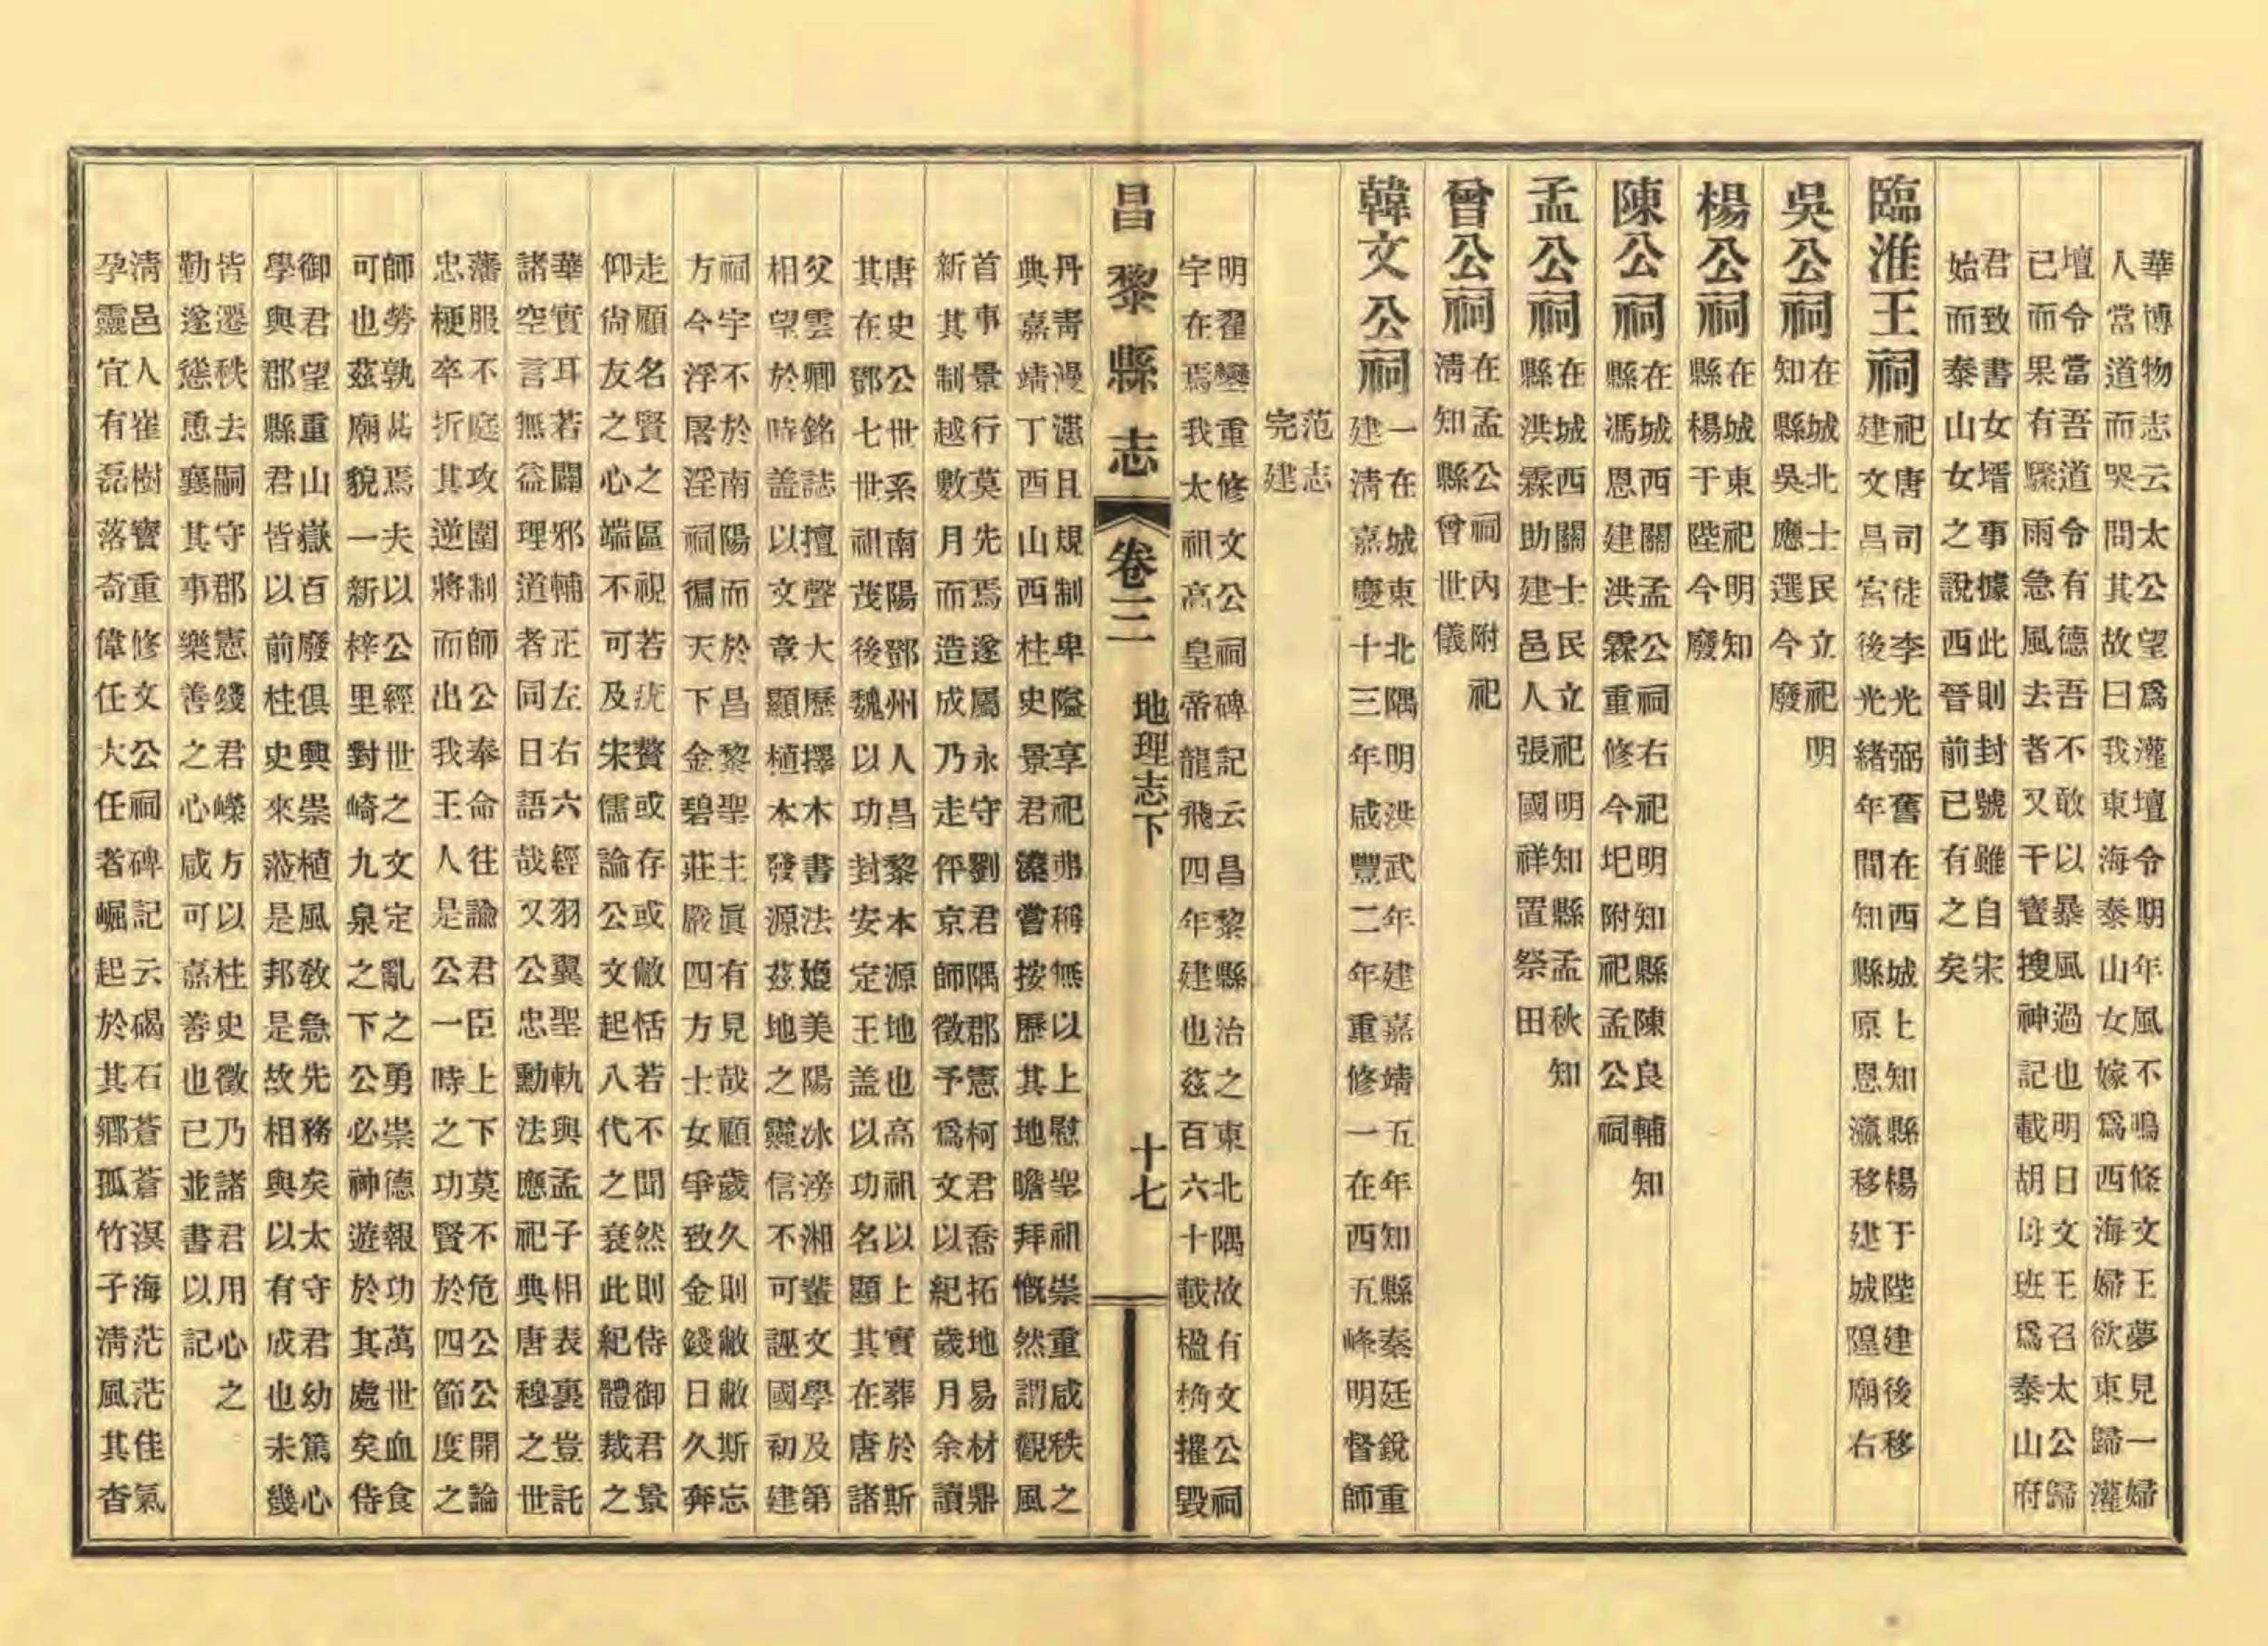 華博物志云太公望爲灌壇令期年風不鳴條文王夢見一婦
人當道而哭問其故曰我東海泰山女嫁爲西海婦欲東歸灌
壇令當吾道令有德吾不敢以暴風過也明日文王召太公歸
已而果有驟雨急風去者又干寶搜神記載胡母班爲泰山府
君致書女壻事據此則封號雖自宋
始而泰山女之說西晉前已有之矣
臨淮王祠
祀唐司徒李光弼舊在西城上知縣楊于陛建後移
建文昌宮後光緒年間知縣原恩瀛移建城隍廟右
吳公祠
在城北士民立祀明
知縣吳應選今廢
楊公祠
在城東祀明知
縣楊于陛今廢
陳公祠
在城西關孟公祠右祀明知縣陳良輔知
縣馮恩建洪霖重修今圯附祀孟公祠
孟公祠
在城西關士民立祀明知縣孟秋知
縣洪霖助建邑人張國祥置祭田
曾公祠
在孟公祠内附祀
清知縣曾世儀
韓文公祠
一在城東北隅明洪武年建嘉靖五年知縣秦廷銳重
建清嘉慶十三年咸豐二年重修一在西五峰明督師
范志
完建
明翟鑾重修文公祠碑記云昌黎縣治之東北隅故有文公祠
宇在焉我太祖高皇帝龍飛四年建也茲百六十載楹桷摧毀
昌黎縣志 卷三 地理志下 十七
丹靑漫漶且規制卑隘享祀弗稱無以上慰聖祖崇重咸秩之
典嘉靖丁酉山西柱史景君溱嘗按歷其地瞻拜慨然謂觀風
首事景行莫先焉遂屬永守劉君隅郡憲柯君喬拓地易材鼎
新其制越數月而造成乃走伻京師徵予爲文以紀歲月余讀
唐史公世系南陽鄧州人昌黎本源地也高祖以上實葬於斯
其在鄧七世祖茂後魏以功封安定王盖以功名顯其在唐諸
父雲卿銘誌擅聲大歷擇木書法媲美陽冰滂湘輩文學及第
相望於時盖以文章顯植本發源茲地之靈信不可誣國初建
祠宇不於南陽而於昌黎聖主眞有見哉顧歲久則敝敝斯忘
方今浮屠淫祠徧天下金碧莊嚴四方士女爭致金錢日久奔
走顧名賢之區視若疣贅或存或敝恬若不聞然則侍御君景
仰尙友之心端不可及宋儒論公文起八代之衰此紀體裁之
華實耳若闢邪輔正左右六經羽翼聖軌與孟子相表裏豈託
諸空言無益理道者同日語哉又公忠勳法應祀典唐穆之世
藩服不庭攻圍制師公奉命往諭君臣上下莫不危公公開論
忠梗卒折其逆將而出我王人是公一時之功賢於四節度之
師勞孰甚焉夫以公經世之文定亂之勇崇德報功萬世血食
可也茲廟貌一新梓里對崎九泉之下公必神遊於其處矣侍
御君望重山嶽百廢俱興崇植風敎急先務矣太守君幼篤心
學與郡縣君皆以前柱史來蒞是邦是故相與以有成也未幾
皆遷秩去嗣守郡憲錢君嶸方以柱史徵乃諸君用心之
勤遂慫恿襄其事樂善之心咸可嘉善也已並書以記
淸邑人崔樹寶重修文公祠碑記云碣石蒼蒼溟海茫茫佳氣
孕靈宜有磊落奇偉任大任者崛起於其鄉孤竹子淸風其杳